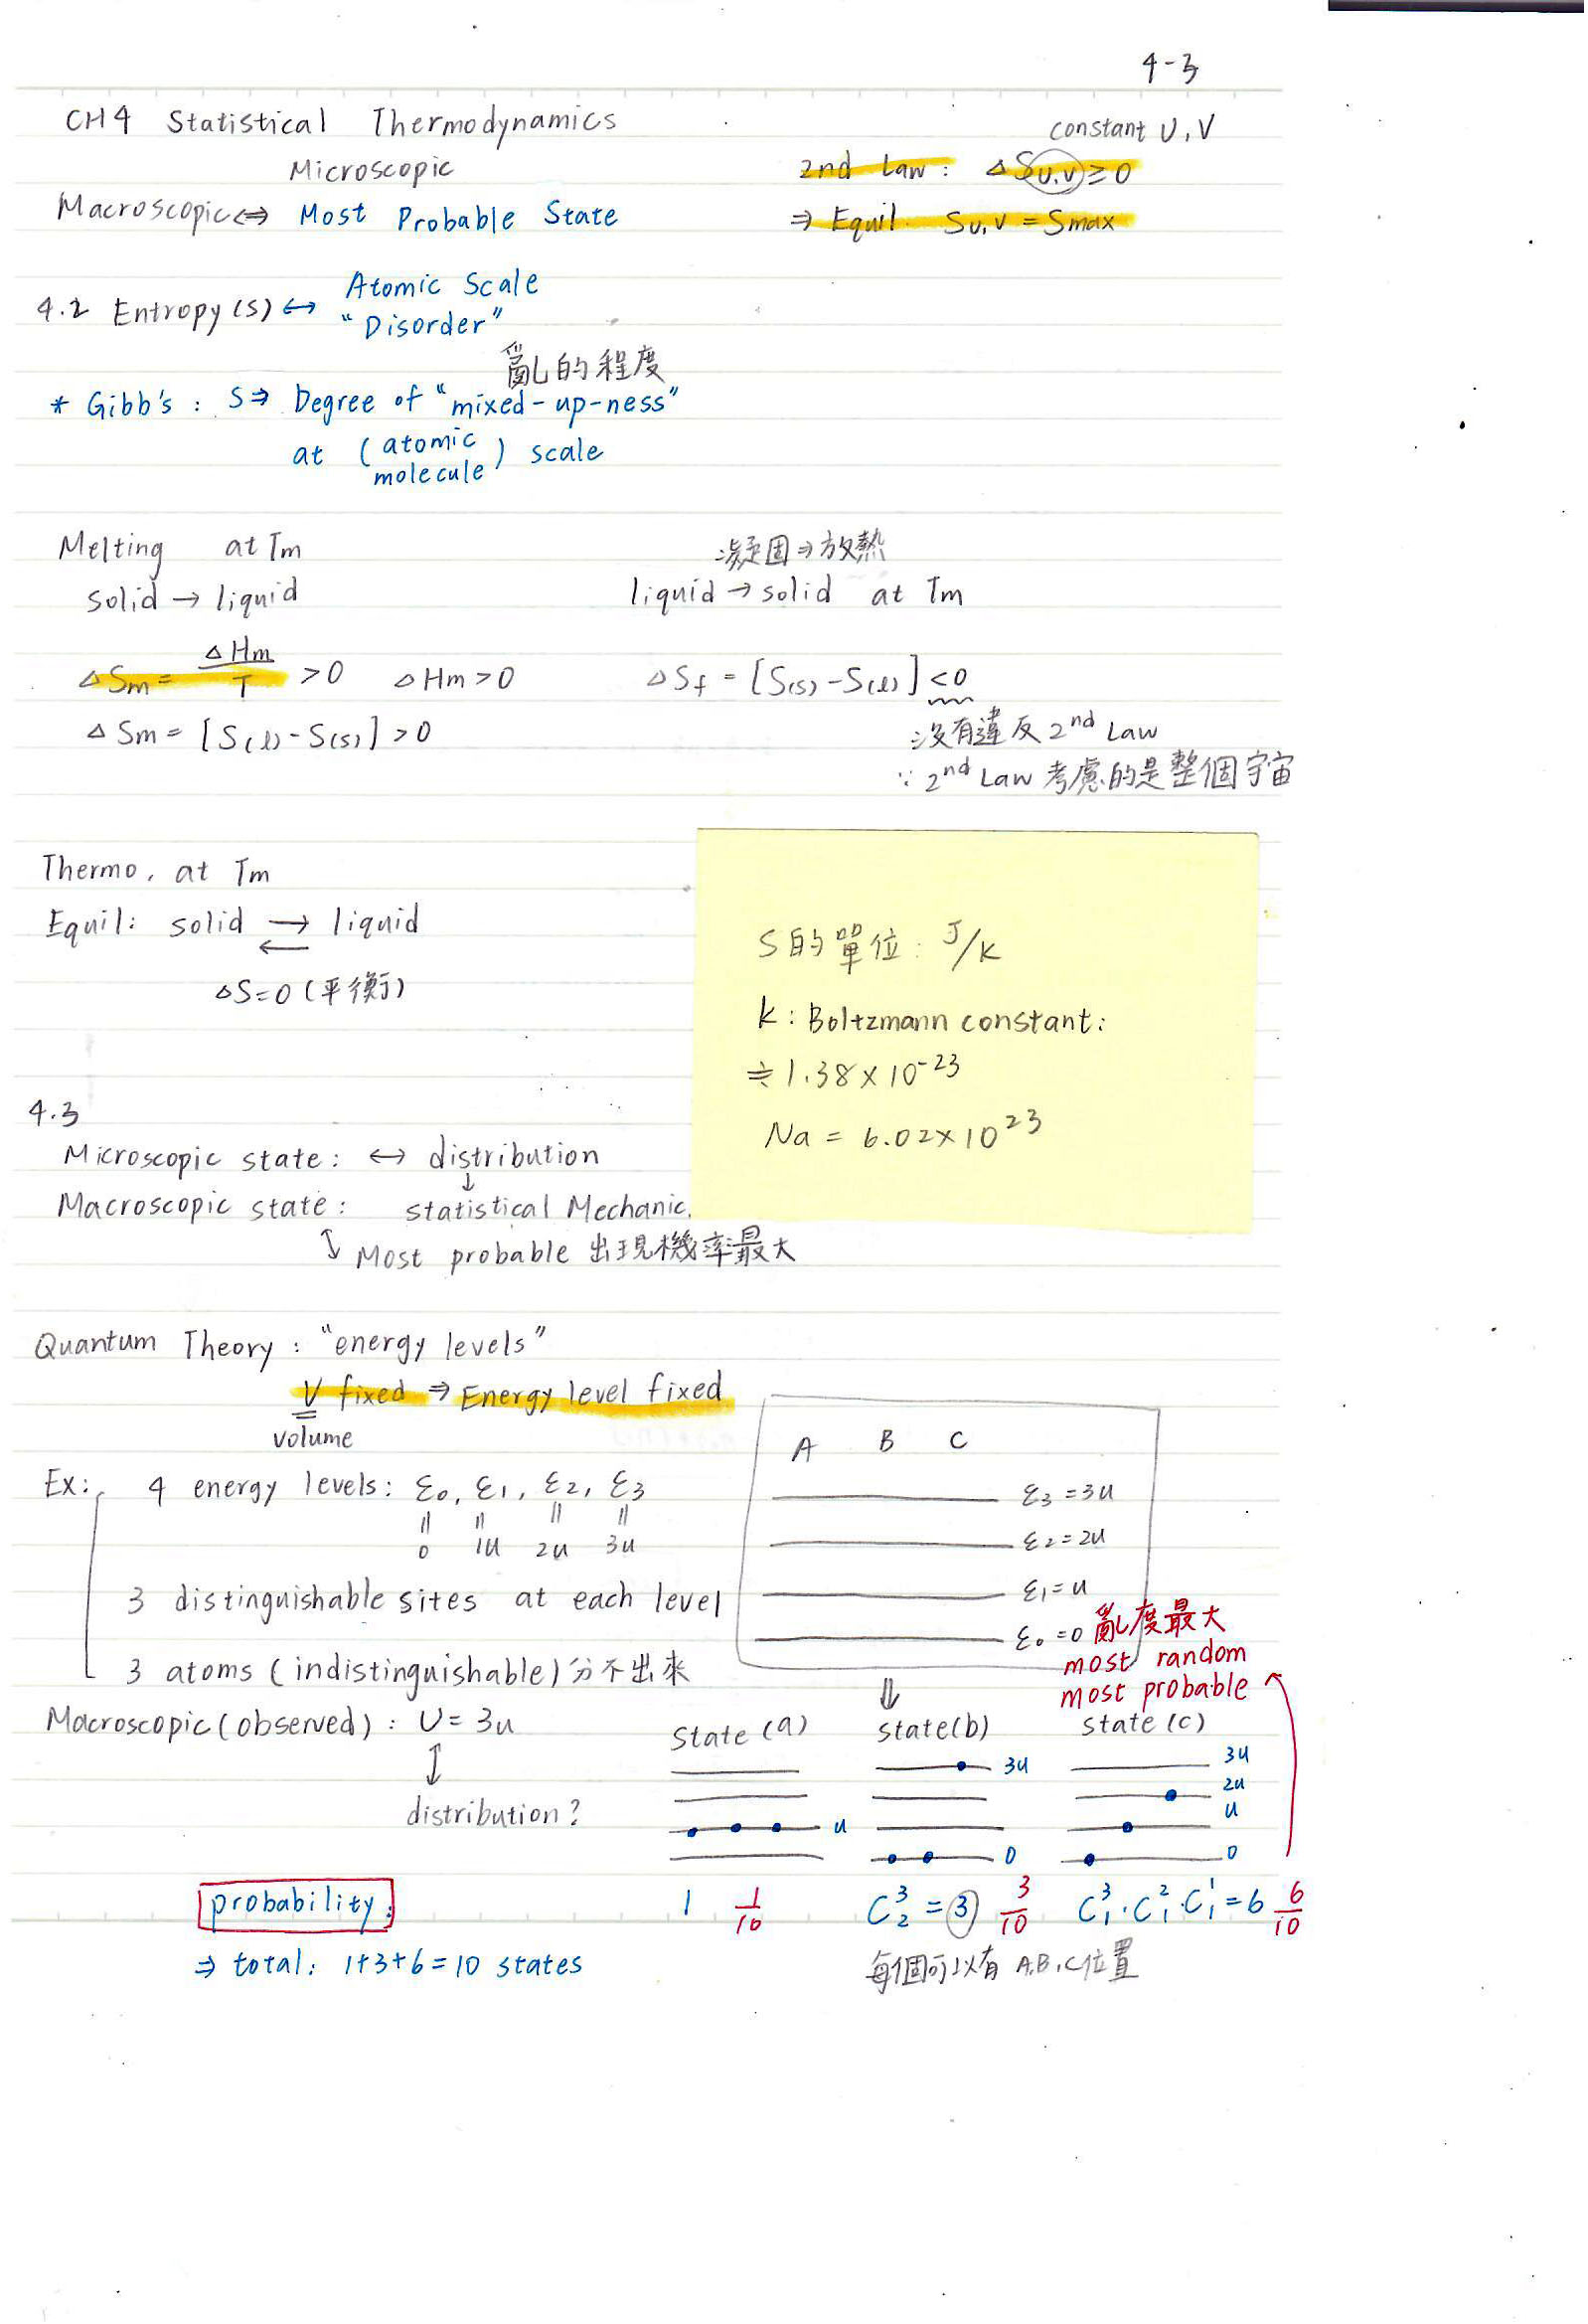 4-3
CH4 Statistical Thermodynamics
constant U, V
Microscopic
2nd Law : ΔS_{U,V} ≥ 0
Macroscopic ⇔ Most Probable State
⇒ Equil. S_{U,V} = Smax
4.2 Entropy (S) ↔ Atomic Scale
"Disorder"
亂的程度
* Gibb's : S ⇒ Degree of "mixed-up-ness"
at (atomic
molecule) scale
Melting at Tm
凝固⇒放熱
solid → liquid
liquid → solid at Tm
ΔSm = ΔHm/T > 0 ΔHm > 0
ΔSf = [S(s) - S(l)] < 0
ΔSm = [S(l) - S(s)] > 0
沒有違反 2nd Law
∵ 2nd Law 考慮的是整個宇宙
Thermo, at Tm
Equil: solid ⇄ liquid
ΔS=0 (平衡)
S的單位: J/K
k : Boltzmann constant:
≒ 1.38×10^-23
Na = 6.02×10^23
4.3
Microscopic state: ↔ distribution
↓
Macroscopic state: statistical Mechanic.
↕ Most probable 出現機率最大
Quantum Theory : "energy levels"
V fixed ⇒ Energy level fixed
volume
A B C
Ex: 4 energy levels: ε0, ε1, ε2, ε3
|| || || ||
0 1u 2u 3u
ε3 = 3u
ε2 = 2u
ε1 = u
ε0 = 0
3 distinguishable sites at each level
3 atoms (indistinguishable) 分不出來
亂度最大
most random
most probable
⇓
Macroscopic (observed) : U = 3u
↕
distribution?
state (a) state (b) state (c)
3u 3u
2u
u u
0 0
probability:
1 1/10 C^3_2 = 3 3/10 C^3_1 · C^2_1 · C^1_1 = 6 6/10
⇒ total: 1+3+6 = 10 states
每個可以有 A,B,C位置